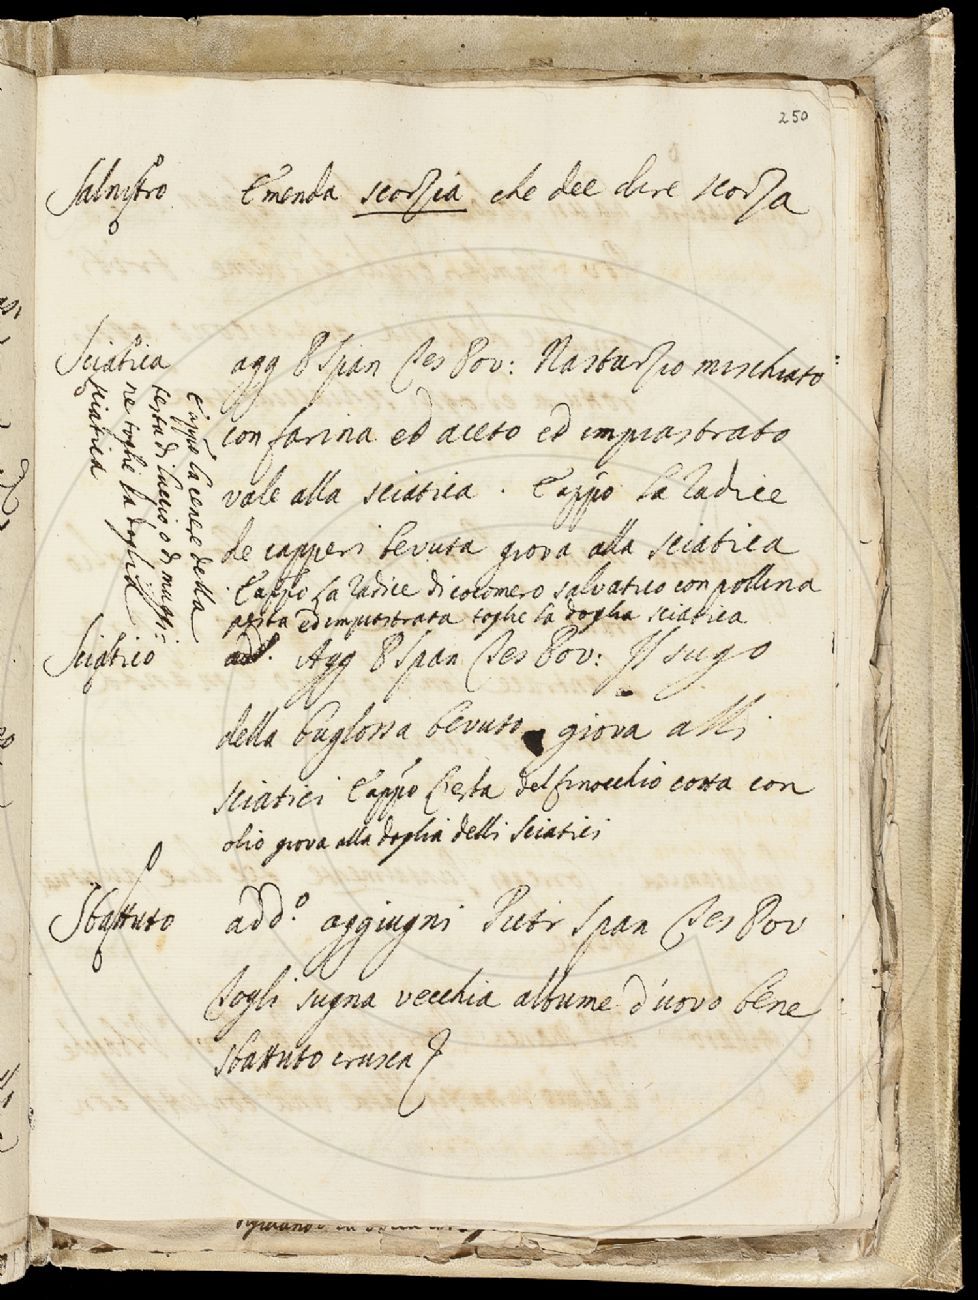 250
Salnitro Emenda scorzia che dee dire scorza
Sciatica agg P Span Tes Pov: Nasturzio mischiato
con farina ed aceto ed impiastrato
vale alla sciatica. E app̃o La Radice
de capperi bevuta giova alla sciatica
E app̃o La Radice di cocomero salvatico con pollina
pesta ed impiastrata toglie la doglia sciatica
E app̃o La cenere della
testa di luccio, o di muggi-
ne toglie la doglia
sciatica
Sciatico add. Agg P Span Tes Pov: Il sugo
della buglossa bevuto giova alli
sciatici E app̃o Testa del finocchio cotta con
olio giova alla doglia delli sciatici
Sbattuto add.º aggiugni Pietr Span Tes Pov
Togli sugna vecchia albume d'uovo bene
sbattuto crusca